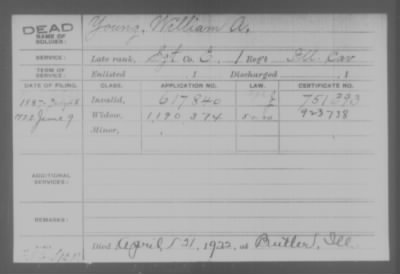 DEAD
NAME OF SOLDIER:
Young, William A.
SERVICE:
Late rank, Sgt Co. G, 1 Reg't Ill. Cav
TERM OF SERVICE:
Enlisted , 1 Discharged , 1
DATE OF FILING. CLASS. APPLICATION NO. LAW. CERTIFICATE NO.
1887 July 8 Invalid, 617840 751393
1922 June 9 Widow, 1,190,374 923738
Minor,
ADDITIONAL SERVICES:
REMARKS:
Died April 21, 1922, at Butler, Ill.